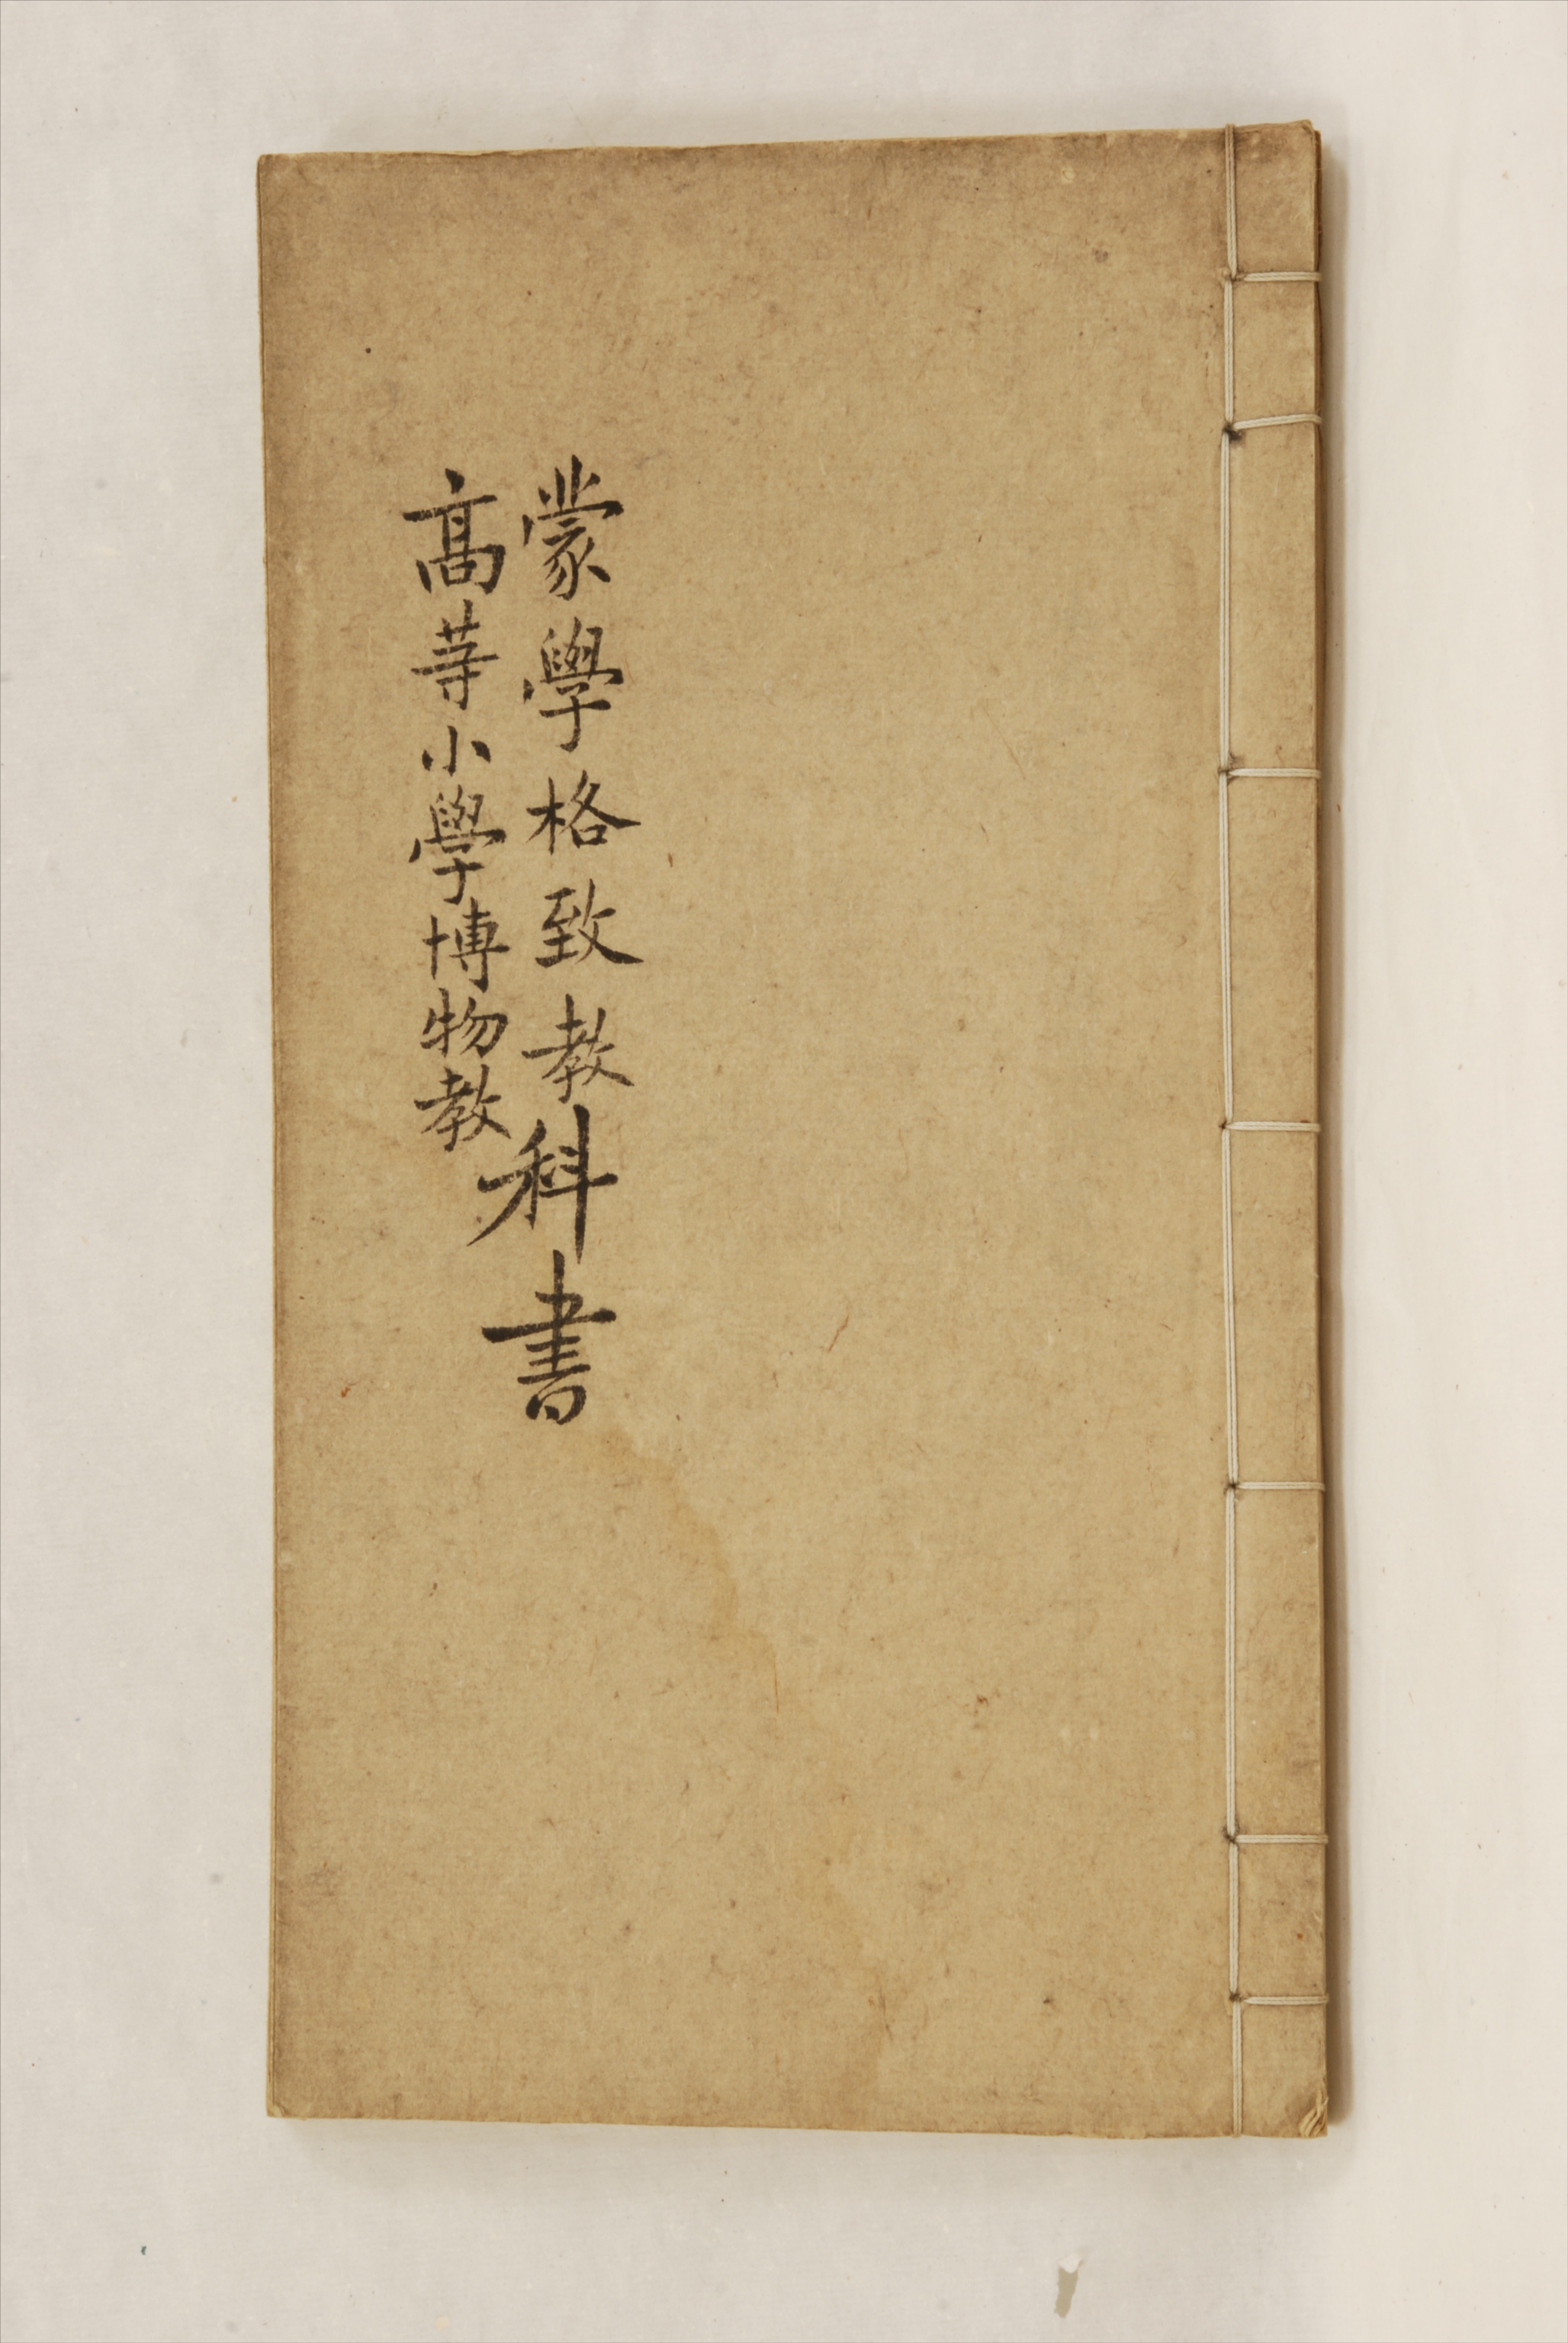 蒙學格致教
高等小學博物教
科書